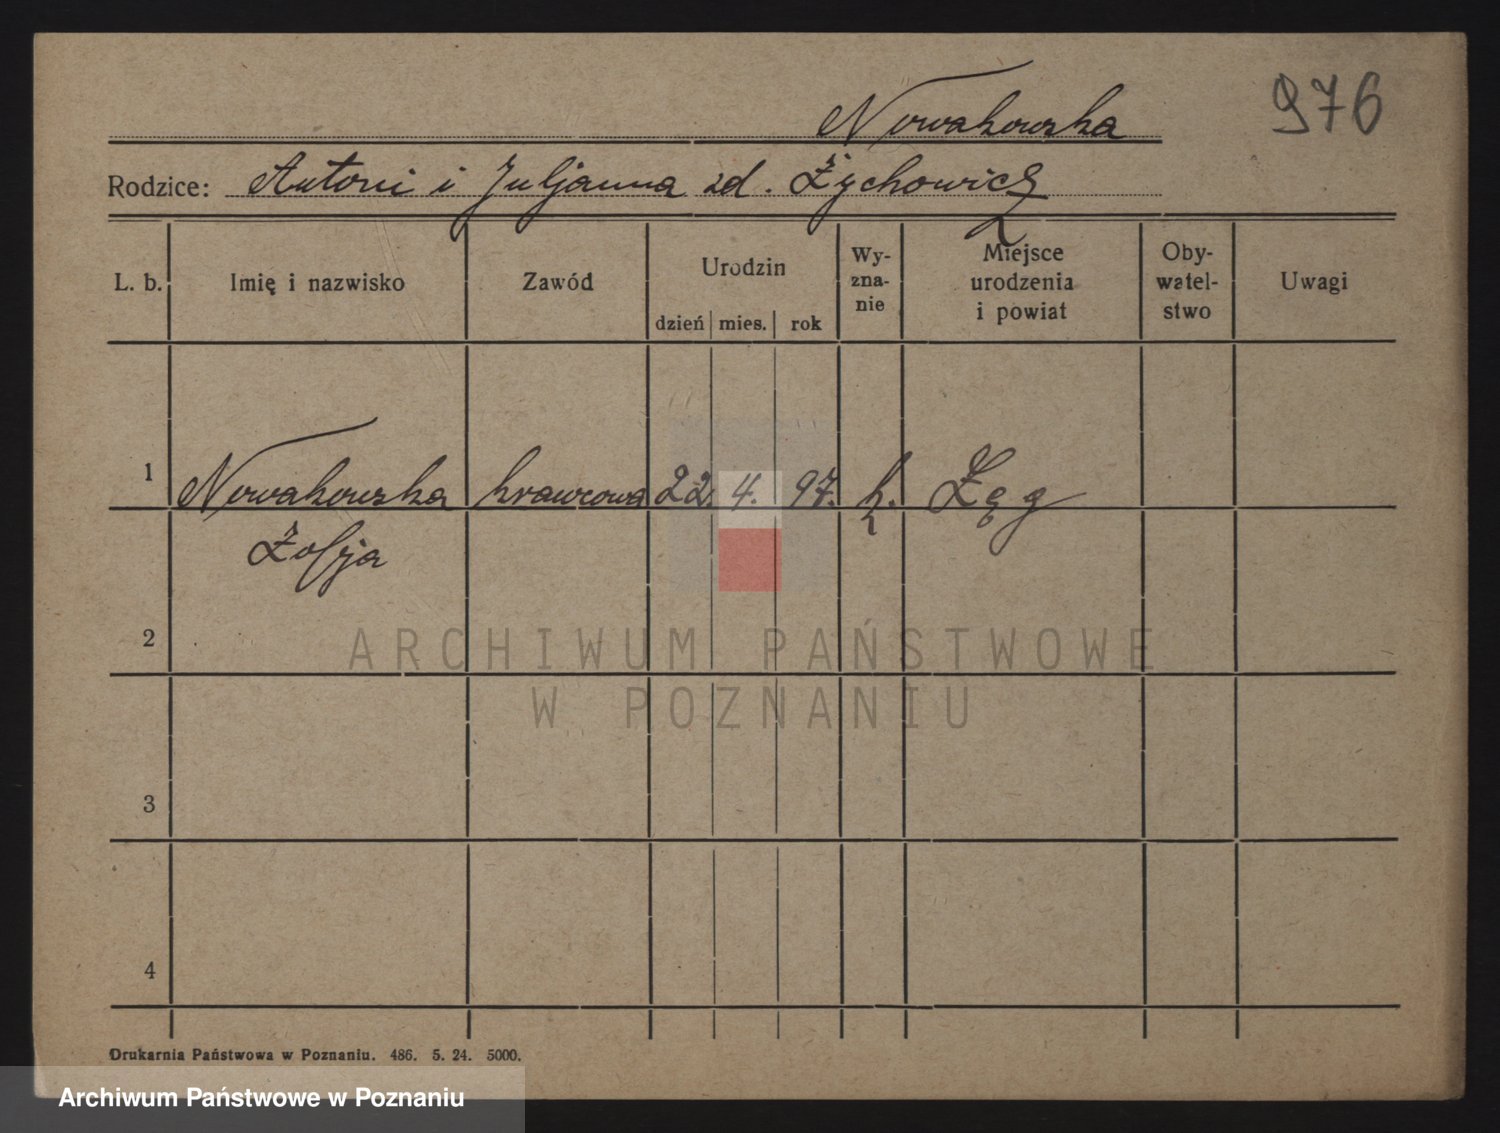 976
Nowakowska
Rodzice: Antoni i Juljanna zd. Żychowicz
L. b. Imię i nazwisko Zawód Urodzin dzień mies. rok Wy-zna-nie Miejsce urodzenia i powiat Oby-watel-stwo Uwagi
1 Nowakowska krawcowa 22. 4. 97. k. Łęg
Zofja
2
ARCHIWUM PAŃSTWOWE
W POZNANIU
3
4
Drukarnia Państwowa w Poznaniu. 486. 5. 24. 5000.
Archiwum Państwowe w Poznaniu